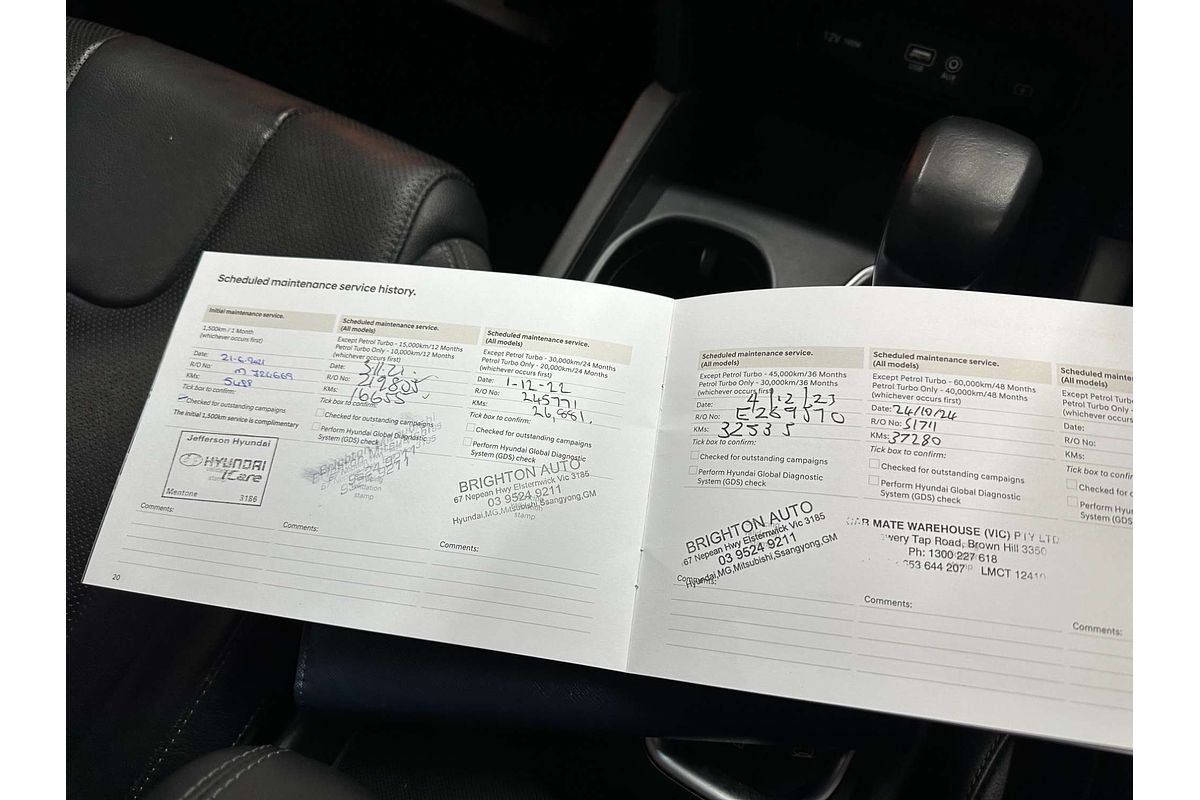 12V
USB
AUX
Scheduled maintenance service history.
Initial maintenance service.
1,500km / 1 Month
(whichever occurs first)
Date: 21-6-2021
R/O No: M 724669
KMs: 5488
Tick box to confirm:
Checked for outstanding campaigns
The initial 1,500km service is complimentary
Jefferson Hyundai
HYUNDAI
iCare
Mentone 3186
Comments:
20
Scheduled maintenance service.
(All models)
Except Petrol Turbo - 15,000km/12 Months
Petrol Turbo Only - 10,000km/12 Months
(whichever occurs first)
Date:
R/O No: 219805
KMs: 16655
Tick box to confirm:
Checked for outstanding campaigns
Perform Hyundai Global Diagnostic
System (GDS) check
stamp
Comments:
Scheduled maintenance service.
(All models)
Except Petrol Turbo - 30,000km/24 Months
Petrol Turbo Only - 20,000km/24 Months
(whichever occurs first)
Date: 1-12-22
R/O No: 245771
KMs: 26,881.
Tick box to confirm:
Checked for outstanding campaigns
Perform Hyundai Global Diagnostic
System (GDS) check
BRIGHTON AUTO
67 Nepean Hwy Elsternwick Vic 3185
03 9524 9211
Hyundai,MG,Mitsubishi,Ssangyong,GM
stamp
Comments:
Scheduled maintenance service.
(All models)
Except Petrol Turbo - 45,000km/36 Months
Petrol Turbo Only - 30,000km/36 Months
(whichever occurs first)
Date: 4/12/23
R/O No: E269570
KMs: 32535
Tick box to confirm:
Checked for outstanding campaigns
Perform Hyundai Global Diagnostic
System (GDS) check
BRIGHTON AUTO
67 Nepean Hwy Elsternwick Vic 3185
03 9524 9211
Hyundai,MG,Mitsubishi,Ssangyong,GM
Comments:
Scheduled maintenance service.
(All models)
Except Petrol Turbo - 60,000km/48 Months
Petrol Turbo Only - 40,000km/48 Months
(whichever occurs first)
Date: 24/10/24
R/O No: 51711
KMs: 37280
Tick box to confirm:
Checked for outstanding campaigns
Perform Hyundai Global Diagnostic
System (GDS) check
CAR MATE WAREHOUSE (VIC) PTY LTD
Tap Road, Brown Hill 3350
Ph: 1300 227 618
653 644 207 LMCT 12410
Comments:
Scheduled maintenance
(All models)
Except Petrol Turbo
Petrol Turbo Only
(whichever occurs
Date:
R/O No:
KMs:
Tick box to confirm
Checked for
Perform Hyun
System (GDS
Comments: